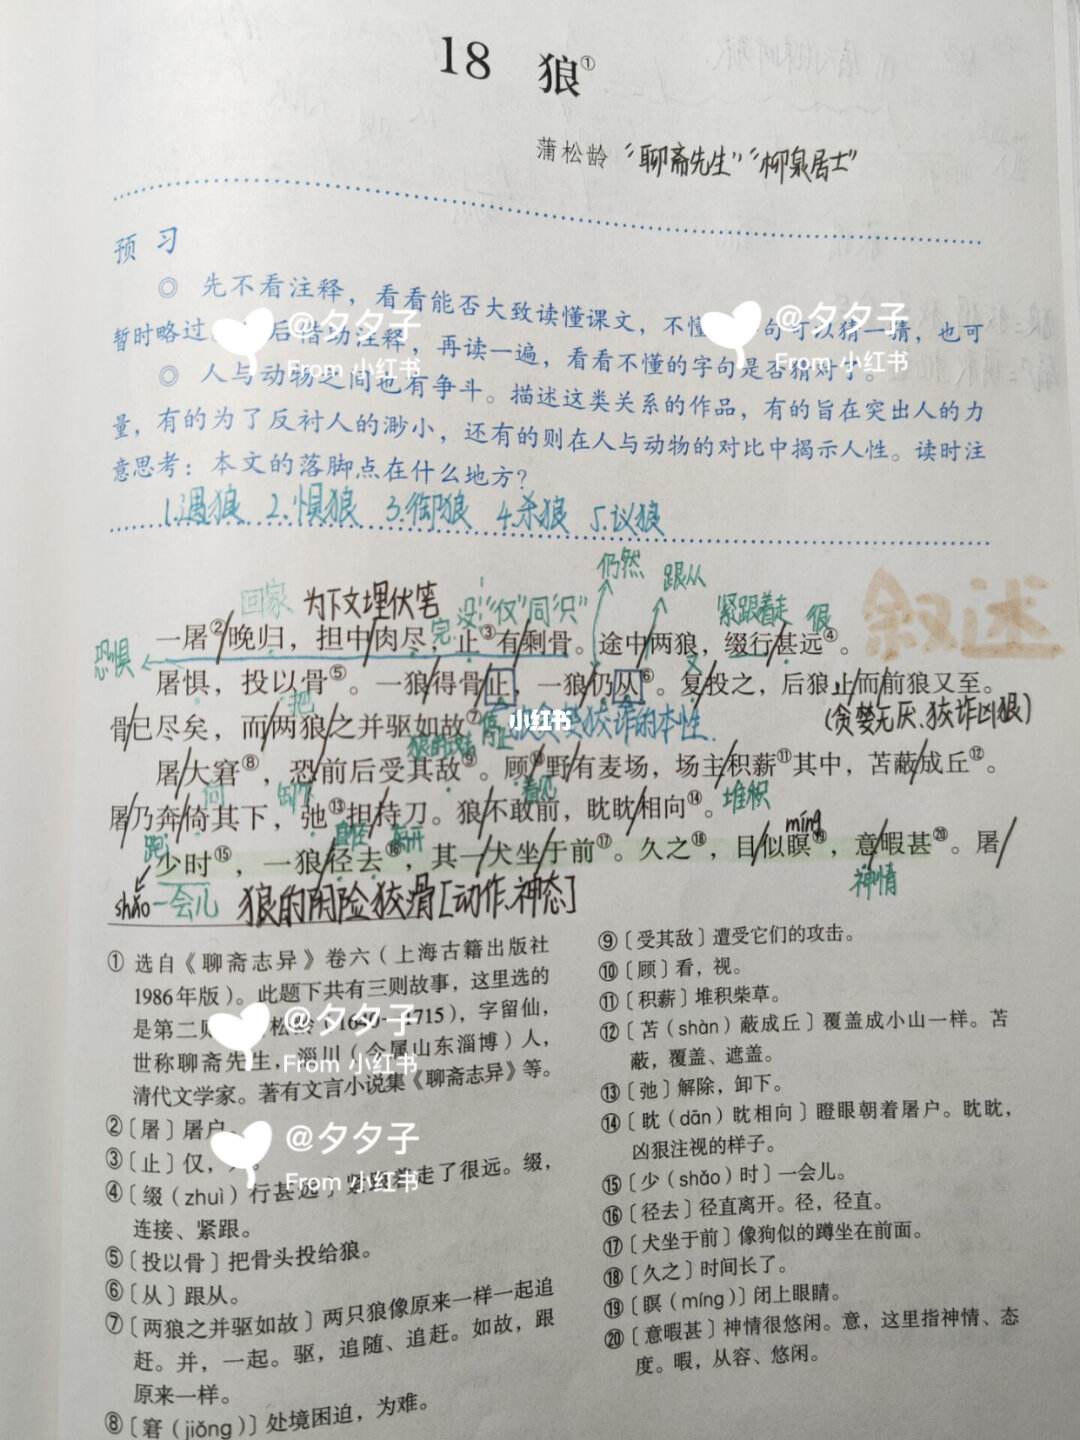 18 狼①
蒲松龄 “聊斋先生”“柳泉居士”
预 习
◎ 先不看注释，看看能否大致读懂课文，不懂 句可以猜一猜，也可
暂时略过。 后借助注释，再读一遍，看看不懂的字句是否猜对了。
◎ 人与动物之间也有争斗。描述这类关系的作品，有的旨在突出人的力
量，有的为了反衬人的渺小，还有的则在人与动物的对比中揭示人性。读时注
意思考：本文的落脚点在什么地方？
1.遇狼 2.惧狼 3.御狼 4.杀狼 5.议狼
仍然 跟从
回家 为下文埋伏笔 完 没 “仅”同“只” 紧跟着走 很
叙述
一屠②晚归，担中肉尽，止③有剩骨。途中两狼，缀行甚远④。
恐惧 又
屠惧，投以骨⑤。一狼得骨止，一狼仍从⑥。复投之，后狼止而前狼又至。
把 停止 狼贪婪狡诈的本性. (贪婪无厌、狡诈凶狠)
骨已尽矣，而两狼之并驱如故⑦。
小红书
屠大窘⑧，恐前后受其敌⑨。顾⑩野有麦场，场主积薪⑪其中，苫蔽成丘⑫。
向 卸下 看见 堆积
屠乃奔倚其下，弛⑬担持刀。狼不敢前，眈眈相向⑭。
跑 径直 离开 míng
少时⑮，一狼径去⑯，其一犬坐于前⑰。久之⑱，目似瞑⑲，意暇甚⑳。屠
shǎo 一会儿 狼的阴险狡滑[动作、神态] 神情
① 选自《聊斋志异》卷六（上海古籍出版社
1986年版）。此题下共有三则故事，这里选的
是第二则 松龄（1640—1715），字留仙，
世称聊斋先生，淄川（今属山东淄博）人，
清代文学家。著有文言小说集《聊斋志异》等。
②〔屠〕屠户。
③〔止〕仅，
④〔缀（zhuì）行甚远〕 走了很远。缀，
连接、紧跟。
⑤〔投以骨〕把骨头投给狼。
⑥〔从〕跟从。
⑦〔两狼之并驱如故〕两只狼像原来一样一起追
赶。并，一起。驱，追随、追赶。如故，跟
原来一样。
⑧〔窘（jiǒng）〕处境困迫，为难。
⑨〔受其敌〕遭受它们的攻击。
⑩〔顾〕看，视。
⑪〔积薪〕堆积柴草。
⑫〔苫（shàn）蔽成丘〕覆盖成小山一样。苫
蔽，覆盖、遮盖。
⑬〔弛〕解除，卸下。
⑭〔眈（dān）眈相向〕瞪眼朝着屠户。眈眈，
凶狠注视的样子。
⑮〔少（shǎo）时〕一会儿。
⑯〔径去〕径直离开。径，径直。
⑰〔犬坐于前〕像狗似的蹲坐在前面。
⑱〔久之〕时间长了。
⑲〔瞑（míng）〕闭上眼睛。
⑳〔意暇甚〕神情很悠闲。意，这里指神情、态
度。暇，从容、悠闲。
@夕夕子
From 小红书
@夕夕子
From 小红书
@夕夕子
From 小红书
@夕夕子
From 小红书